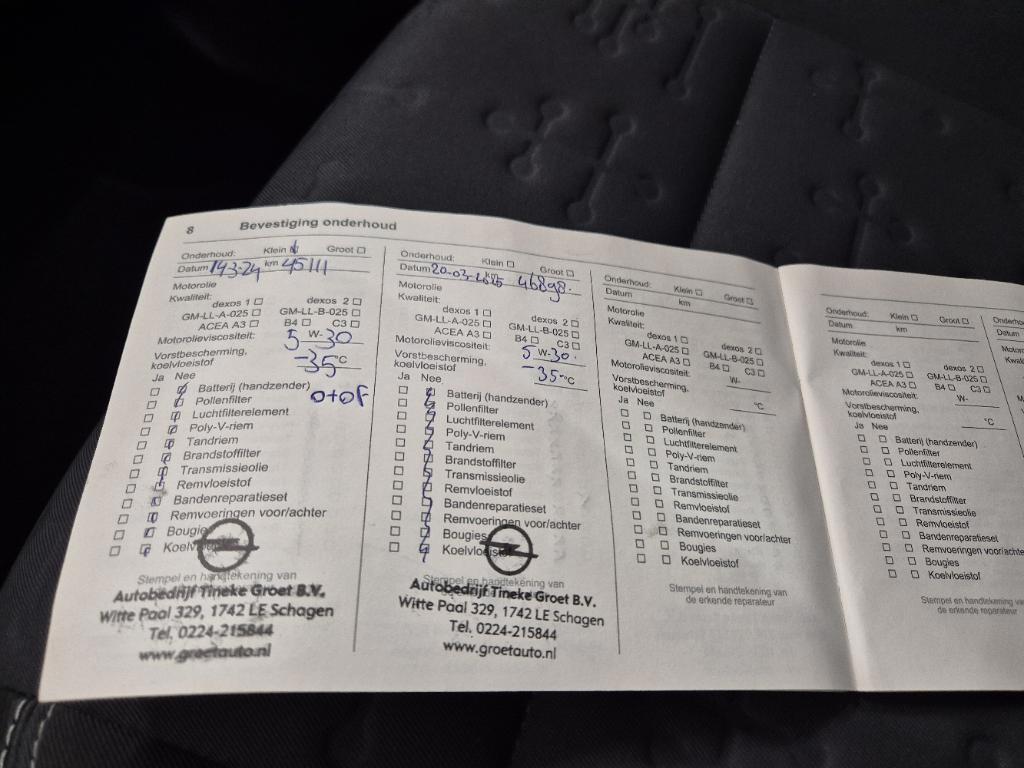 8 Bevestiging onderhoud
Onderhoud: Klein Groot
Datum 14-3-24 km 45111
Motorolie
Kwaliteit:
dexos 1 dexos 2
GM-LL-A-025 GM-LL-B-025
ACEA A3 B4 C3
Motorolieviscositeit: 5 W-30
Vorstbescherming,
koelvloeistof -35 °C
Ja Nee
Batterij (handzender)
Pollenfilter
Luchtfilterelement
Poly-V-riem
Tandriem
Brandstoffilter
Transmissieolie
Remvloeistof
Bandenreparatieset
Remvoeringen voor/achter
Bougies
Koelvloeistof
Stempel en handtekening van
Autobedrijf Tineke Groet B.V.
Witte Paal 329, 1742 LE Schagen
Tel. 0224-215844
www.groetauto.nl
Onderhoud: Klein Groot
Datum 20-03-2025 km 46898.
Motorolie
Kwaliteit:
dexos 1 dexos 2
GM-LL-A-025 GM-LL-B-025
ACEA A3 B4 C3
Motorolieviscositeit: 5 W-30.
Vorstbescherming,
koelvloeistof -35 °C
Ja Nee
Batterij (handzender)
Pollenfilter
Luchtfilterelement
Poly-V-riem
Tandriem
Brandstoffilter
Transmissieolie
Remvloeistof
Bandenreparatieset
Remvoeringen voor/achter
Bougies
Koelvloeistof
Stempel en handtekening van
Autobedrijf Tineke Groet B.V.
Witte Paal 329, 1742 LE Schagen
Tel. 0224-215844
www.groetauto.nl
Onderhoud: Klein Groot
Datum km
Motorolie
Kwaliteit:
dexos 1 dexos 2
GM-LL-A-025 GM-LL-B-025
ACEA A3 B4 C3
Motorolieviscositeit: W-
Vorstbescherming,
koelvloeistof °C
Ja Nee
Batterij (handzender)
Pollenfilter
Luchtfilterelement
Poly-V-riem
Tandriem
Brandstoffilter
Transmissieolie
Remvloeistof
Bandenreparatieset
Remvoeringen voor/achter
Bougies
Koelvloeistof
Stempel en handtekening van
de erkende reparateur
Onderhoud: Klein Groot
Datum km
Motorolie
Kwaliteit:
dexos 1 dexos 2
GM-LL-A-025 GM-LL-B-025
ACEA A3 B4 C3
Motorolieviscositeit: W-
Vorstbescherming,
koelvloeistof °C
Ja Nee
Batterij (handzender)
Pollenfilter
Luchtfilterelement
Poly-V-riem
Tandriem
Brandstoffilter
Transmissieolie
Remvloeistof
Bandenreparatieset
Remvoeringen voor/achter
Bougies
Koelvloeistof
Stempel en handtekening van
de erkende reparateur